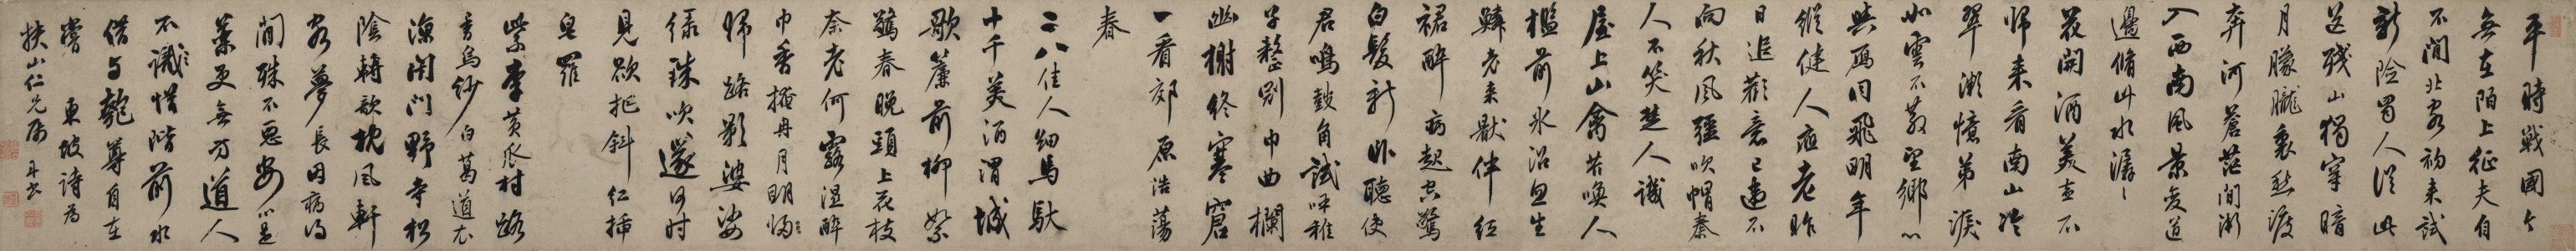 平時戰國今
無在陌上征夫自
不閒北客初來試
新險蜀人從此
送殘山獨穿暗
月朦朧裏愁渡
奔河蒼茫間漸
入西南風景變道
邊脩竹水潺〻
花開酒美不
歸來看南山冷
翠漸憶弟淚
如雲不散望鄉心
與雁同飛明年
縱健人應老昨
日追歡意已違不
向秋風彊吹帽秦
人不笑楚人譏
屋上山禽苦喚人
檻前冰沼忽生
鱗老來厭伴紅
裙醉病起空驚
白髮新臥聽使
君鳴鼓角試呼稚
子整冠巾曲欄
幽榭終寒窘
一看郊原浩蕩
春
二八佳人細馬馱
十千美酒渭城
歌簾前柳絮
驚春晚頭上花枝
奈老何露濕醉
巾香掩冉月明
歸路影婆娑
綠珠吹篴何時
見欲把斜紅插
皂羅
紫李黃瓜村路
香烏紗白葛道衣
涼閉門野寺松
陰轉欹枕風軒
客夢長因病得
閒殊不惡安心是
藥更無方道人
不識惜階前水
借與匏尊自在
嘗　東坡詩為
扶山仁兄屬